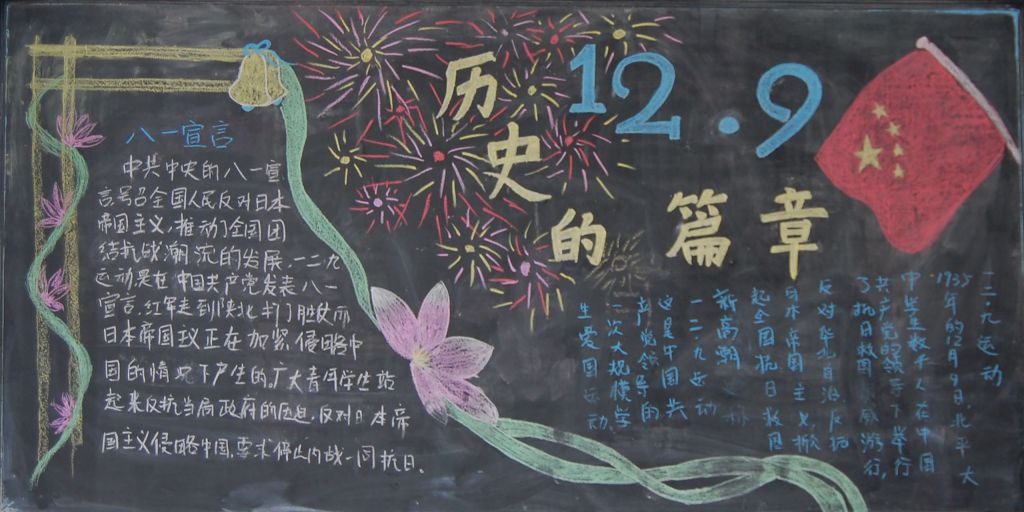 历史的篇章
12.9
八一宣言
中共中央的八一宣
言号召全国人民反对日本
帝国主义，推动了全国团
结抗战潮流的发展。一二九
运动是在中国共产党发表八一
宣言，红军走到陕北
日本帝国主义正在加紧侵略中
国的情况下产生的。广大青年学生站
起来反抗当局政府的压迫，反对日本帝
国主义侵略中国，要求停止内战一同抗日。
一二九运动
1935年的12月9日，北平大
中学生数千人在中国
共产党的领导下举行
了抗日救国示威游行，
反对华北自治，反抗
日本帝国主义，掀
起全国抗日救国
新高潮
一二九运动
这是中国共
产党领导的
一次大规模学
生爱国运动